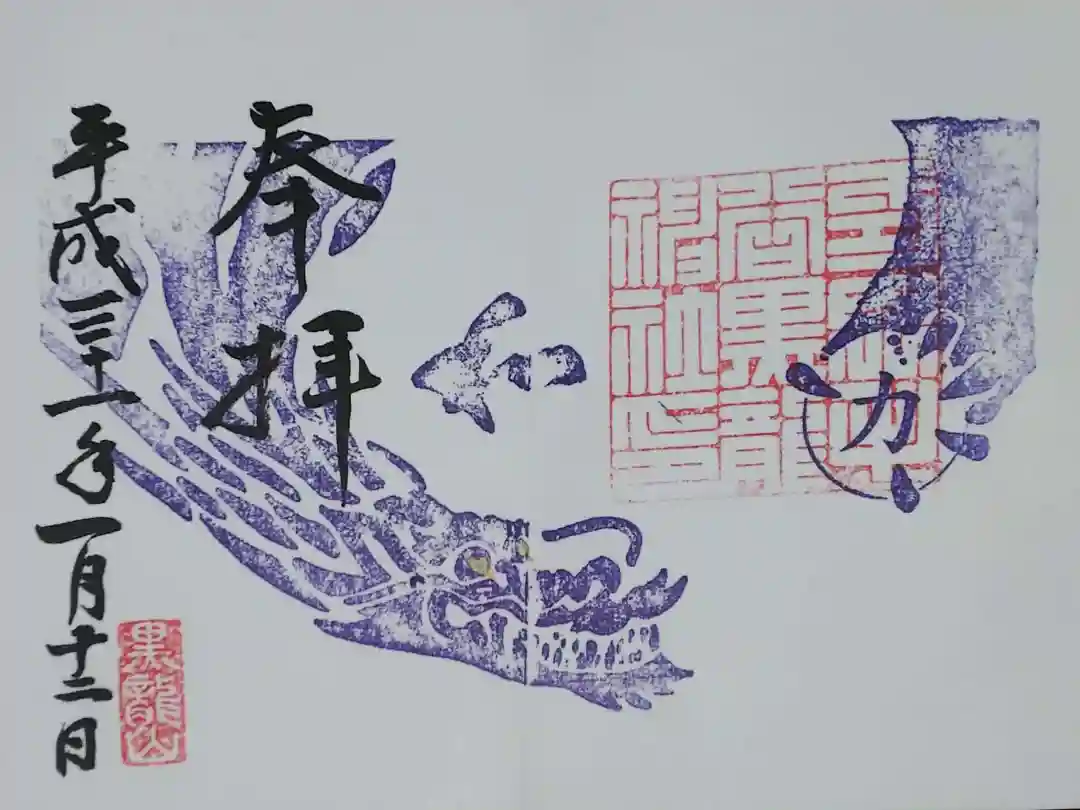 黒龍
神社印
力
奉拝
平成三十一年一月十二日
黒龍山